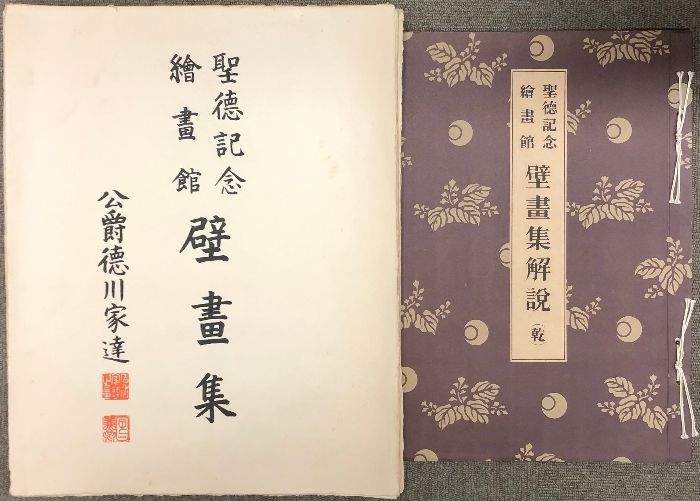 聖德記念
繪畫館
壁畫集
公爵德川家達
聖德記念
繪畫館
壁畫集解說
(乾)